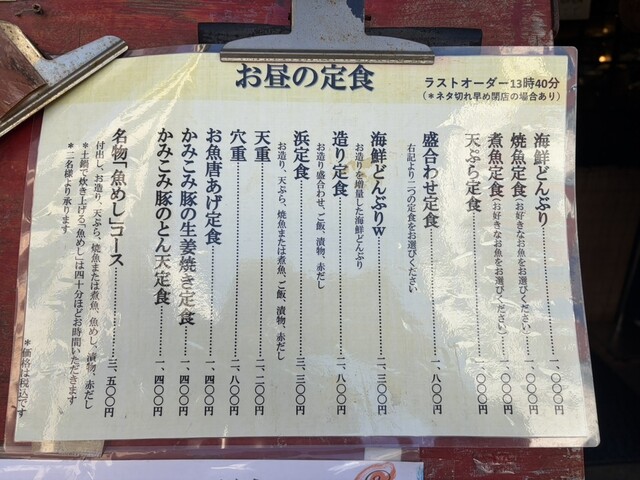 お昼の定食
ラストオーダー13時40分
（＊ネタ切れ早め閉店の場合あり）
海鮮どんぶり……一、〇〇〇円
焼魚定食（お好きなお魚をお選びください）……一、〇〇〇円
煮魚定食（お好きなお魚をお選びください）……一、〇〇〇円
天ぷら定食……一、〇〇〇円
盛合わせ定食……一、八〇〇円
右記より二つの定食をお選びください
海鮮どんぶりW……二、三〇〇円
お造りを増量した海鮮どんぶり
造り定食……二、八〇〇円
お造り盛合わせ、ご飯、漬物、赤だし
浜定食……三、三〇〇円
お造り、天ぷら、焼魚または煮魚、ご飯、漬物、赤だし
天重……一、二〇〇円
穴重……一、八〇〇円
お魚唐あげ定食……一、四〇〇円
かみこみ豚の生姜焼き定食……一、四〇〇円
かみこみ豚のとん天定食……一、四〇〇円
名物「魚めし」コース……三、五〇〇円
付出し、お造り、天ぷら、焼魚または煮魚、魚めし、漬物、赤だし
＊土鍋で炊き上げる「魚めし」は四十分ほどお時間いただきます
＊二名様より承ります
＊価格は税込です